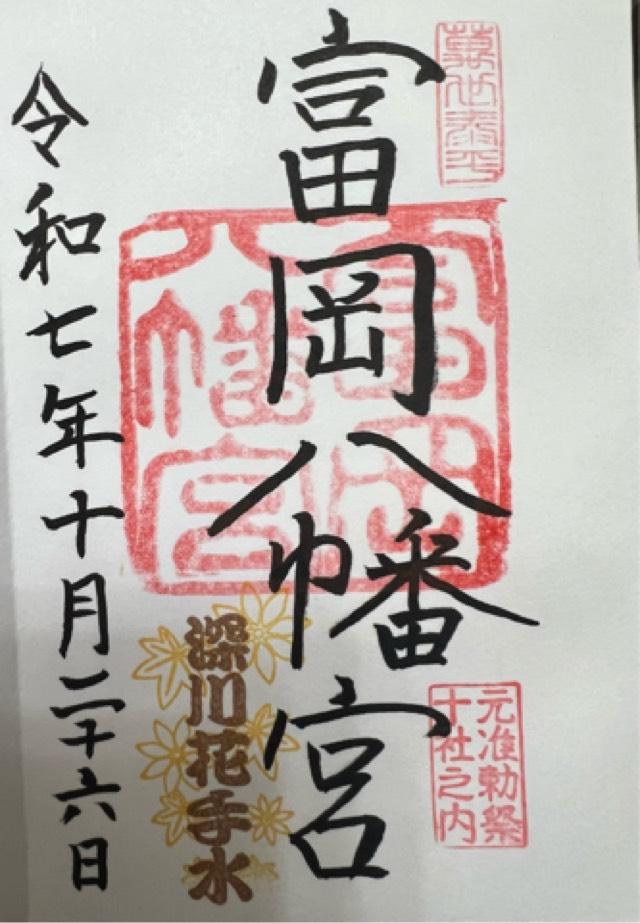 萬世泰平
富岡八幡宮
富岡八幡宮
元准勅祭
十社之内
深川花手水
令和七年十月二十六日